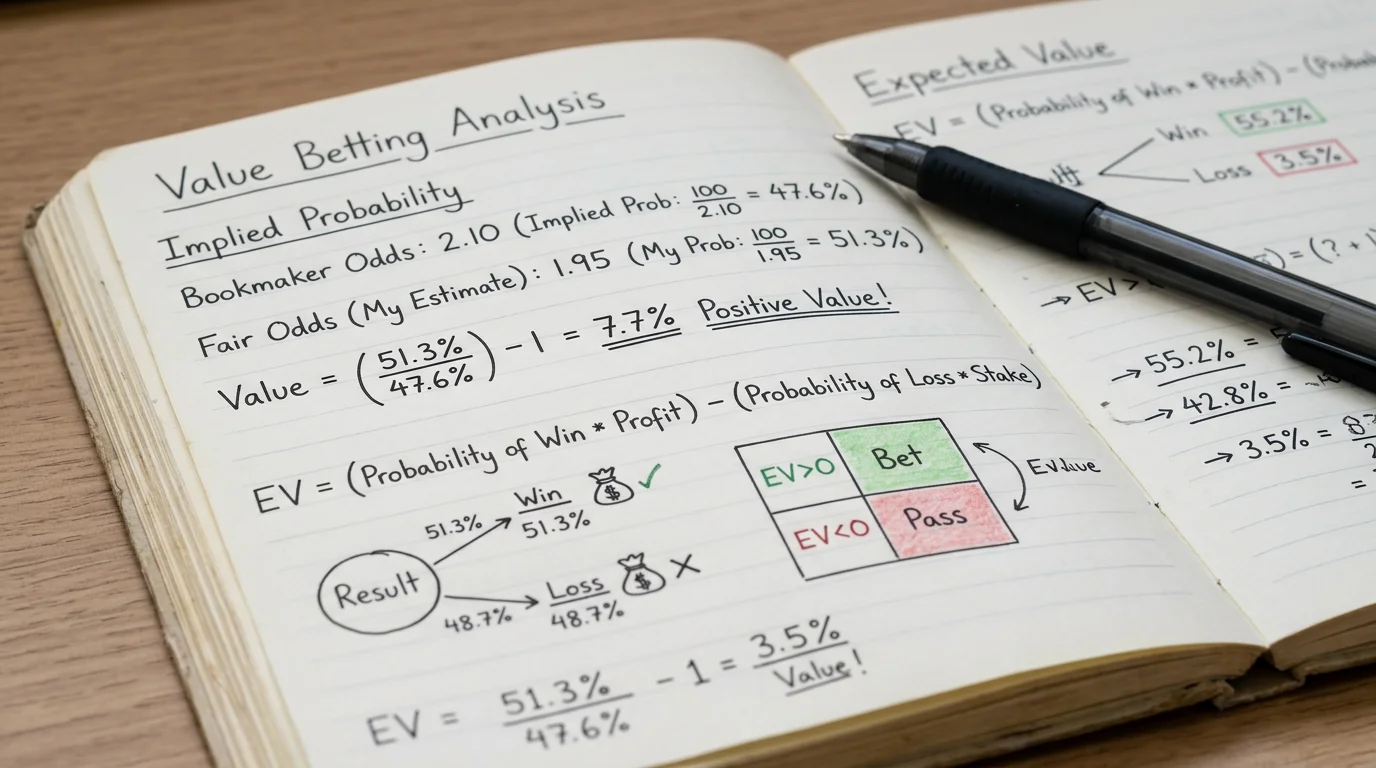 Value Betting Analysis
Implied Probability
Bookmaker Odds: 2.10 (Implied Prob: 100/2.10 = 47.6%)
Fair Odds (My Estimate): 1.95 (My Prob: 100/1.95 = 51.3%)
Value = (51.3%/47.6%) - 1 = 7.7% Positive Value!
EV = (Probability of Win * Profit) - (Probability of Loss * Stake)
51.3% Win 51.3% $
Result
48.7% Loss 48.7% $
EV>0 Bet
EV<0 Pass
EV = 51.3%/47.6% - 1 = 3.5% Value!
Expected Value
EV = (Probability of Win * Profit) - (
Win 55.2%
Loss 3.5%
= (? + 1
→ EV >
→ 55.2% =
→ 42.8% =
→ 3.5% =
=